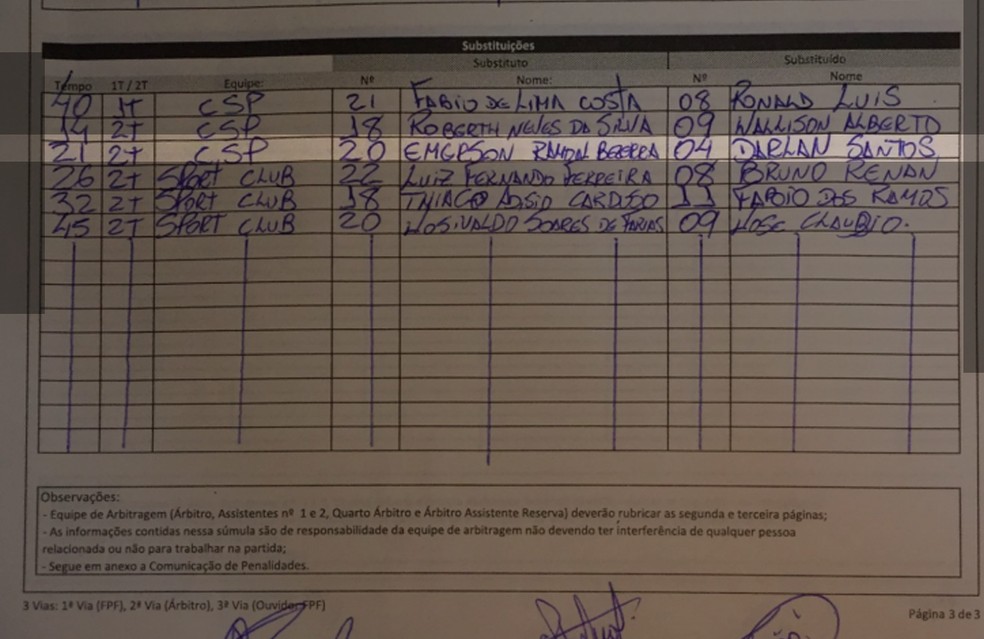 Substituições
Substituto Substituído
Tempo 1T / 2T Equipe: Nº Nome: Nº Nome
40 1T CSP 21 FABIO DE LIMA COSTA 08 RONALD LUIS
14 2T CSP 18 ROBERTH NEVES DA SILVA 09 WALLISON ALBERTO
21 2T CSP 20 EMERSON RAMON BEZERRA 04 DARLAN SANTOS
26 2T SPORT CLUB 22 LUIZ FERNANDO FERREIRA 08 BRUNO RENAN
32 2T SPORT CLUB 18 THIAGO CARDOSO 11 FABIO DOS RAMOS
45 2T SPORT CLUB 20 JOSIVALDO SOARES DE FARIAS 09 JOSE CLAUDIO.
Observações:
- Equipe de Arbitragem (Árbitro, Assistentes nº 1 e 2, Quarto Árbitro e Árbitro Assistente Reserva) deverão rubricar as segunda e terceira páginas;
- As informações contidas nessa súmula são de responsabilidade da equipe de arbitragem não devendo ter interferência de qualquer pessoa
relacionada ou não para trabalhar na partida;
- Segue em anexo a Comunicação de Penalidades.
3 Vias: 1ª Via (FPF), 2ª Via (Árbitro), 3ª Via (Ouvidor FPF)
Página 3 de 3